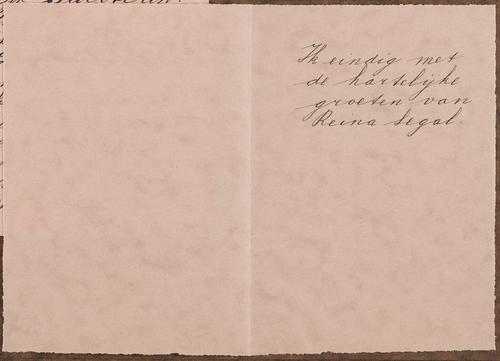 Ik eindig met
de hartelijke
groeten van
Reina Segal.